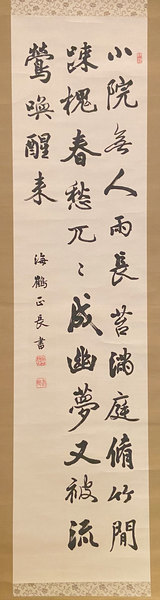 小院無人雨長苔滿庭脩竹間
踈槐春愁兀〻成幽夢又被流
鶯喚醒来
海鶴正長書